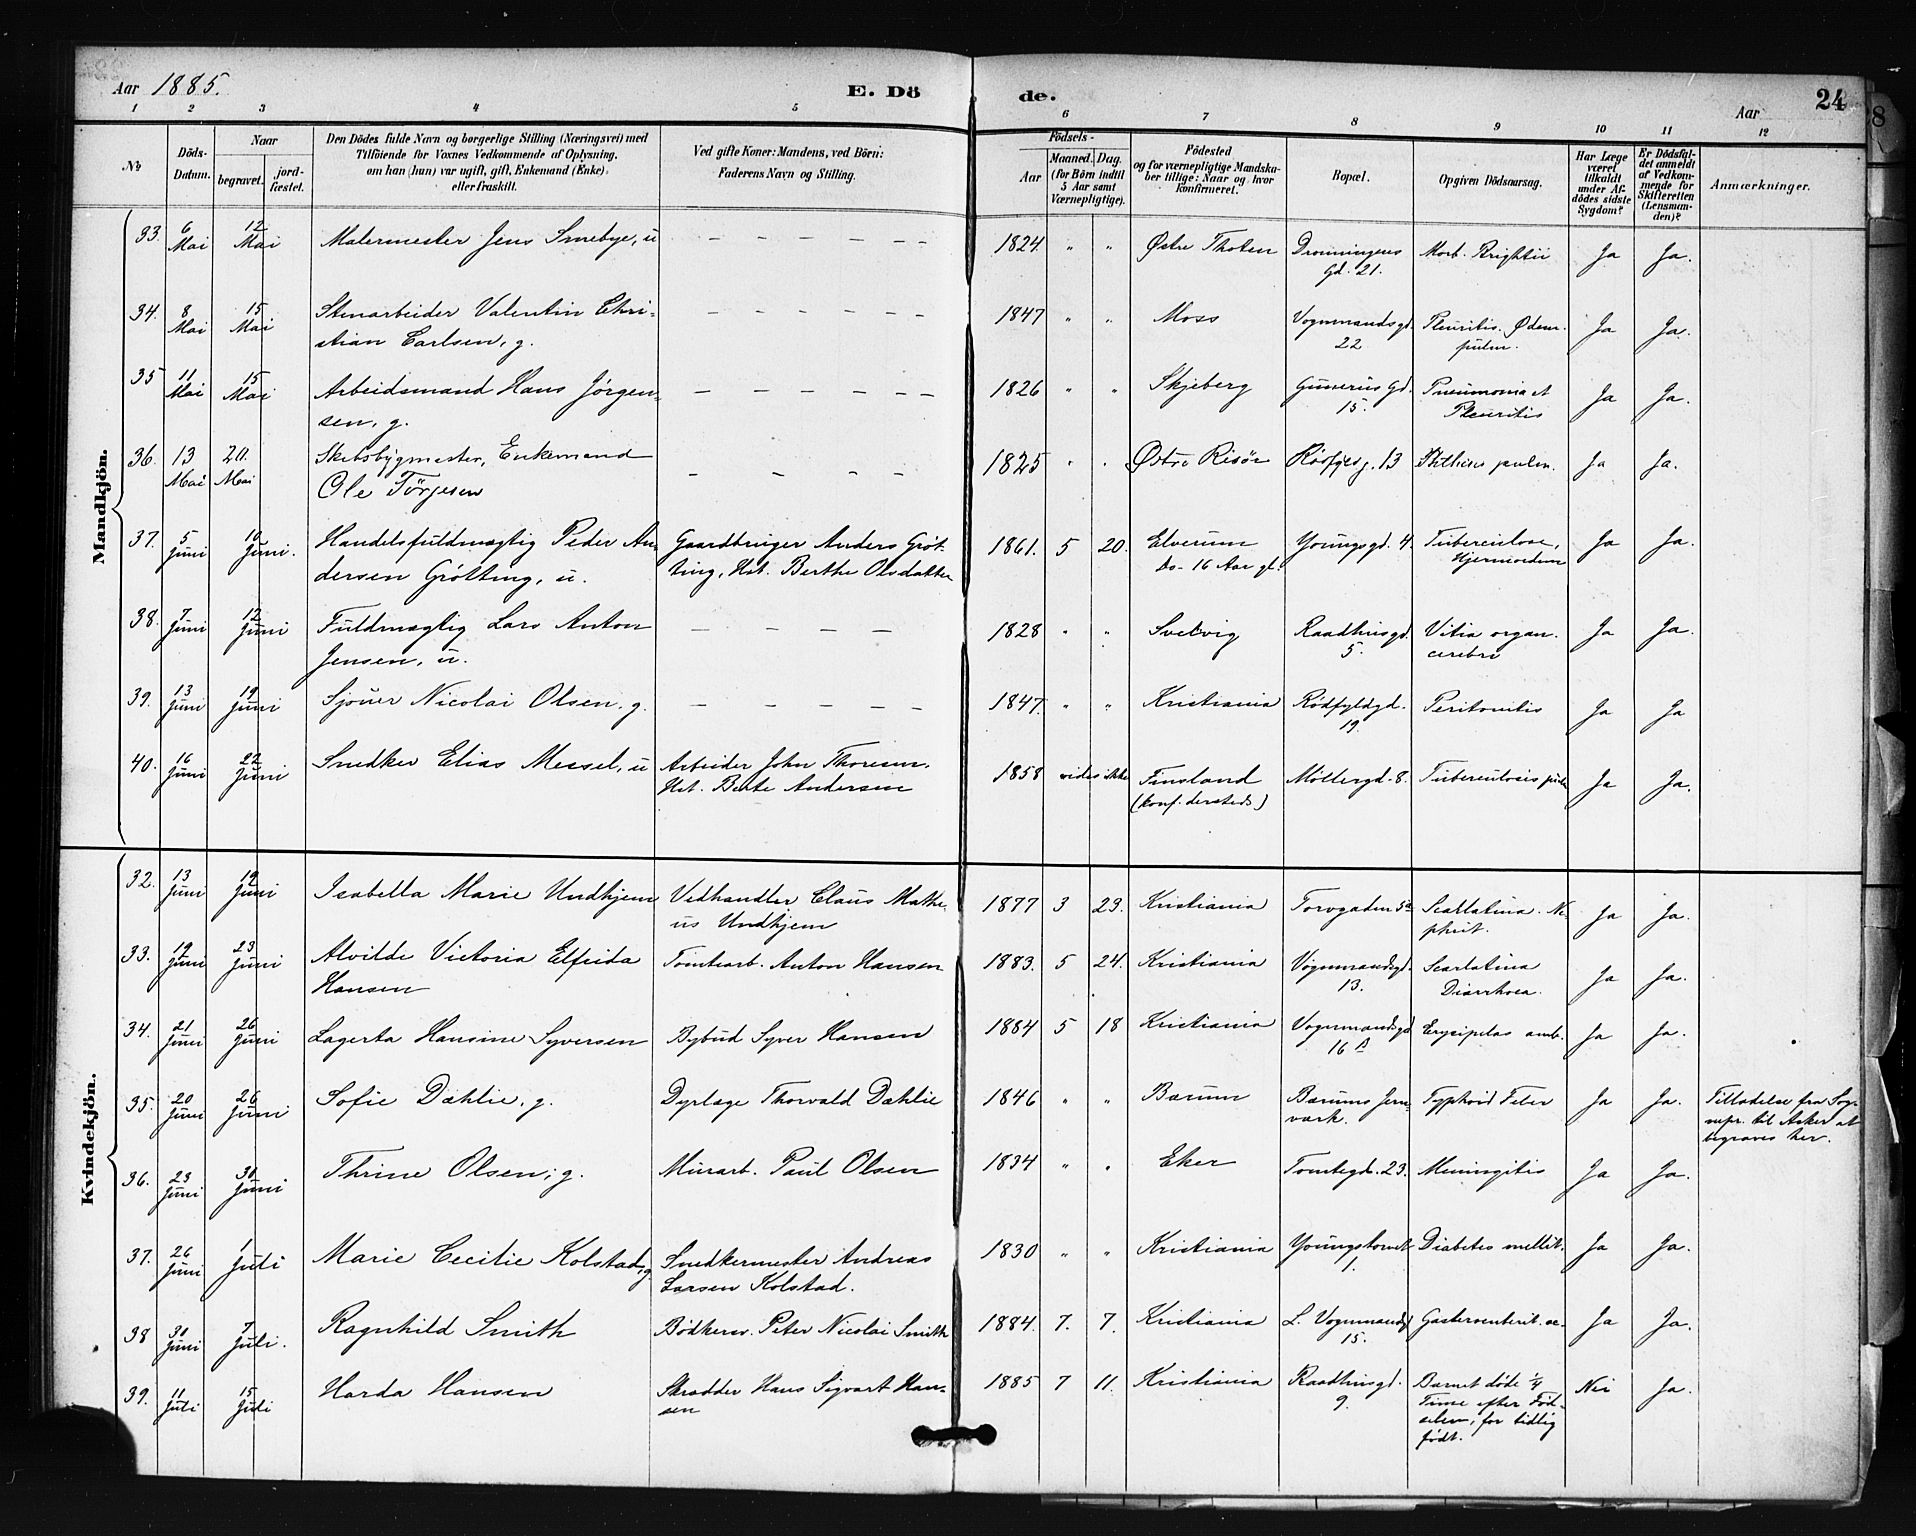 Aar 1885. E. Dö de. Aar 24
1 2 3 4 5 6 7 8 9 10 11 12
No Döds-Datum. Naar begravet. jordfæstet. Den Dödes fulde Navn og borgerlige Stilling (Næringsvei) med Tilföiende for Voxnes Vedkommende af Oplysning, om han (hun) var ugift, gift, Enkemand (Enke), eller fraskilt. Ved gifte Koner: Mandens, ved Börn: Faderens Navn og Stilling. Födsels- Aar Maaned. Dag. (for Börn indtil 5 Aar samt Værnepligtige). Födested og for værnepligtige Mandskaber tillige: Naar og hvor konfirmeret. Bopæl. Opgiven Dödsaarsag. Har Læge været tilkaldt under Afdödes sidste Sygdom? Er Dödsfaldet anmeldt af Vedkommende for Skifteretten (Lensmanden)? Anmærkninger.
Mandkjön.
33. 6 Mai 12 Mai Malermester Jens Smebye, u — — — — — — 1824 " " Østre Thoten Dronningens Gd. 21. Morb. Brightii Ja Ja.
34. 8 Mai 15 Mai Stenarbeider Valentin Chri- — — — — — — 1847 " " Moss Vognmandsgd. 22 Pleuritis. Ødem. pulm. Ja Ja.
stian Carlsen, g.
35 11 Mai 15 Mai Arbeidsmand Hans Jørgen- — — — — — — 1826 " " Skjeberg Gunerius Gd. 15. Pneumonia et Pleuritis Ja Ja.
sen, g.
36. 13 Mai 20. Mai Skibsbygmester, Enkemand — — — — 1825 " " Østre Risör 13 Phthisis pulm. Ja Ja.
Ole Törjesen
37. 5 Juni 10 Juni. Handelsfuldmægtig Peder An- Gaardbruger Anders Gröt- 1861. 5 20. Elverum Youngsgd. 4. Tuberculose, Ja Ja.
dersen Grötting, u. ting, Hst. Berthe Olsdatter Do- 16 Aar gl.
38. 7 Juni 12 Juni Fuldmægtig Lars Anton — — — — 1828 " " Svelvig Raadhusgd. 5. Vitia organ. cerebri Ja Ja.
Jensen, u.
39. 13 Juni 19 Juni Sjouer Nicolai Olsen, g. — — — — — 1847. " " Kristiania Rødfyldgd. 19. Peritonitis Ja Ja
40. 16 Juni 22 Juni Snedker Elias Messel, u Arbeider John Thoresen, 1858 vides ikke Finsland Möllergd. 8. Tuberculosis pulm Ja Ja.
Hst. Berte Andersen (konf. dersteds)
Kvindekjön.
32. 13 Juni 19 Juni Isabella Marie Undhjem Vedhandler Claus Mathe- 1877 3 23. Kristiania Torvgaden 5a Scarlatina. Ne- Ja Ja.
us Undhjem phrit.
33. 19 Juni 23 Juni Alvilde Victoria Elfrida Tomtearb. Anton Hansen 1883. 5 24. Kristiania Vognmandsgd. 13. Scarlatina Diarrhoea. Ja Ja.
Hansen
34. 21 Juni 26 Juni Lagerta Hansine Syversen Bybud Syver Hansen 1884 5 18 Kristiania Vognmandsgd 16 B Erysipelas amb. Ja Ja.
35. 20 Juni 26 Juni Sofie Dæhlie, g. Dyrlæge Thorvald Dæhlie 1846 " " Bærum Bærums Jern- Typhoid Feber Ja Ja. Tilladelse fra Sog-
værk. nepr. til Asker at
begraves her.
36. 23 Juni 30 Juni Thrine Olsen, g. Murarb. Paul Olsen 1834 " " Eker Tomtegd. 23. Meningitis Ja Ja.
37. 26 Juni 1 Juli Marie Cecilie Kolstad, g Snedkermester Andreas 1830 " " Kristiania Youngstorvet 1. Diabetes mellit. Ja Ja.
Larsen Kolstad.
38 30 Juni 7 Juli. Ragnhild Smith Bødkersv. Peter Nicolai Smith 1884. 7. 7. Kristiania L. Vognmandsgd 15. Gasteroenterit. ac. Ja Ja.
39. 11 Juli 15 Juli Harda Hansen Skrædder Hans Sigvart Han- 1885 7 11. Kristiania Raadhusgd. 9. Barnet døde 1/4 Nei Ja.
sen Time efter Fød-
selen, for tidlig
født.